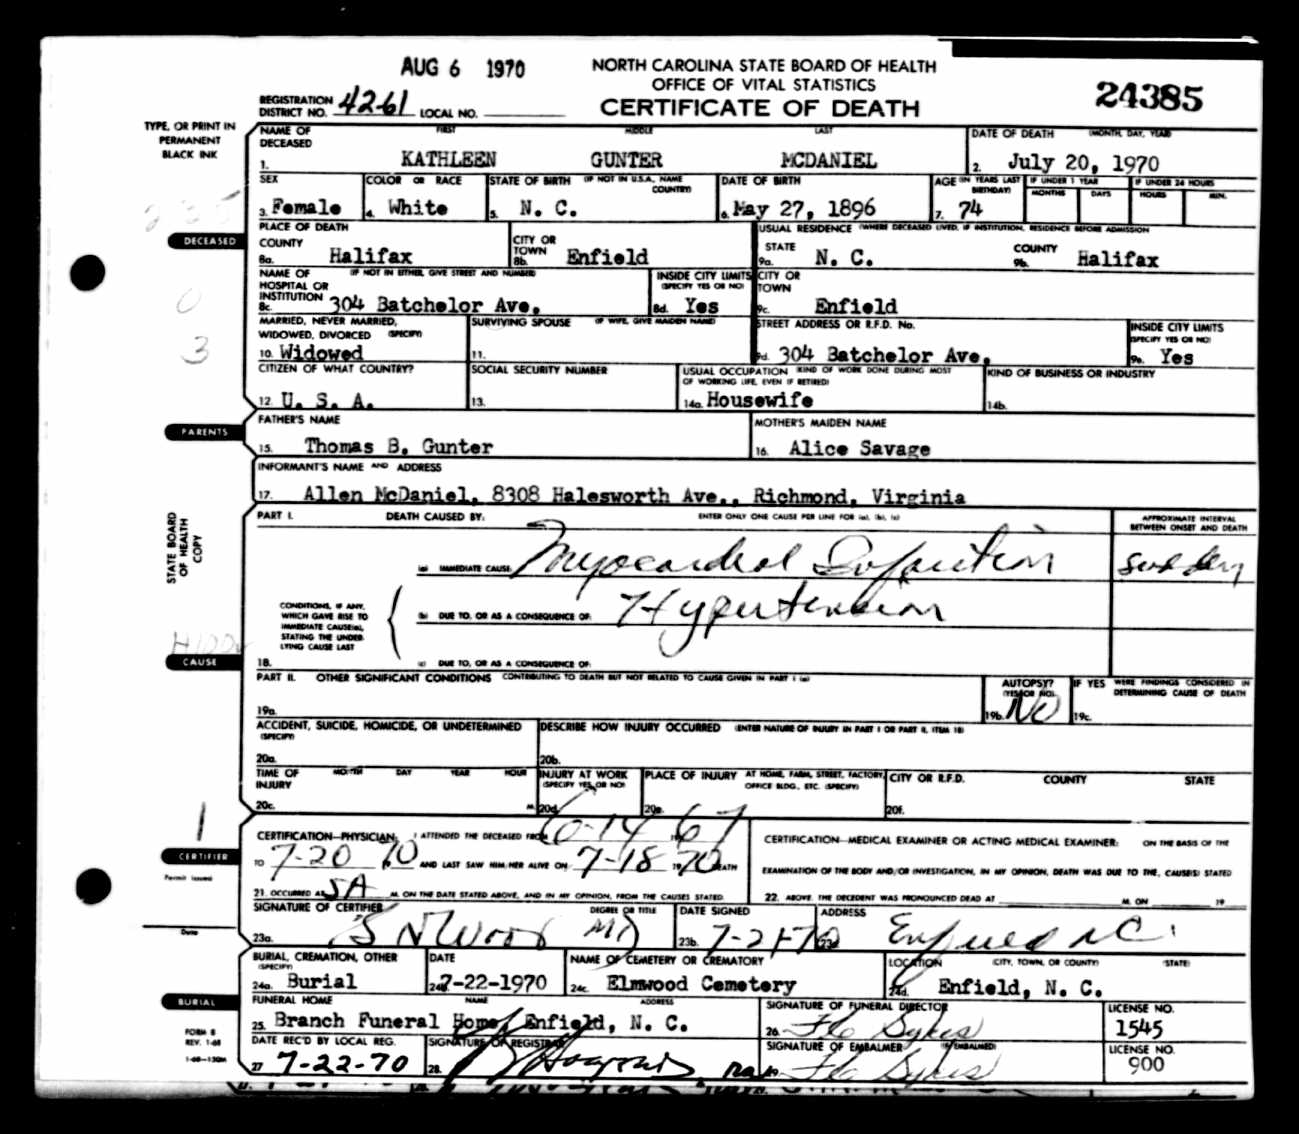 AUG 6 1970
NORTH CAROLINA STATE BOARD OF HEALTH
OFFICE OF VITAL STATISTICS
CERTIFICATE OF DEATH
24385
REGISTRATION DISTRICT NO. 42-61 LOCAL NO.
TYPE, OR PRINT IN
PERMANENT
BLACK INK
NAME OF DECEASED FIRST MIDDLE LAST DATE OF DEATH (MONTH, DAY, YEAR)
1. KATHLEEN GUNTER MCDANIEL 2. July 20, 1970
SEX COLOR OR RACE STATE OF BIRTH (IF NOT IN U.S.A., NAME COUNTRY) DATE OF BIRTH AGE (IN YEARS LAST BIRTHDAY) IF UNDER 1 YEAR MONTHS DAYS IF UNDER 24 HOURS HOURS MIN.
3. Female 4. White 5. N. C. 6. May 27, 1896 7. 74
DECEASED
PLACE OF DEATH USUAL RESIDENCE (WHERE DECEASED LIVED, IF INSTITUTION, RESIDENCE BEFORE ADMISSION
COUNTY CITY OR TOWN STATE COUNTY
8a. Halifax 8b. Enfield 9a. N. C. 9b. Halifax
NAME OF HOSPITAL OR INSTITUTION (IF NOT IN EITHER, GIVE STREET AND NUMBER) INSIDE CITY LIMITS (SPECIFY YES OR NO) CITY OR TOWN
8c. 304 Batchelor Ave. 8d. Yes 9c. Enfield
MARRIED, NEVER MARRIED, WIDOWED, DIVORCED (SPECIFY) SURVIVING SPOUSE (IF WIFE, GIVE MAIDEN NAME) STREET ADDRESS OR R.F.D. No. INSIDE CITY LIMITS (SPECIFY YES OR NO)
10. Widowed 11. 9d. 304 Batchelor Ave. 9e. Yes
CITIZEN OF WHAT COUNTRY? SOCIAL SECURITY NUMBER USUAL OCCUPATION (KIND OF WORK DONE DURING MOST OF WORKING LIFE, EVEN IF RETIRED) KIND OF BUSINESS OR INDUSTRY
12. U. S. A. 13. 14a. Housewife 14b.
PARENTS
FATHER'S NAME MOTHER'S MAIDEN NAME
15. Thomas B. Gunter 16. Alice Savage
INFORMANT'S NAME AND ADDRESS
17. Allen McDaniel, 8308 Halesworth Ave., Richmond, Virginia
STATE BOARD
OF HEALTH
COPY
PART I. DEATH CAUSED BY: ENTER ONLY ONE CAUSE PER LINE FOR (a), (b), (c) APPROXIMATE INTERVAL BETWEEN ONSET AND DEATH
(a) IMMEDIATE CAUSE: Myocardial Infarction Sudden
CONDITIONS, IF ANY,
WHICH GAVE RISE TO
IMMEDIATE CAUSE(a),
STATING THE UNDER-
LYING CAUSE LAST
(b) DUE TO, OR AS A CONSEQUENCE OF: Hypertension
CAUSE
18. (c) DUE TO, OR AS A CONSEQUENCE OF:
PART II. OTHER SIGNIFICANT CONDITIONS CONTRIBUTING TO DEATH BUT NOT RELATED TO CAUSE GIVEN IN PART I (a) AUTOPSY? (YES OR NO) IF YES WERE FINDINGS CONSIDERED IN DETERMINING CAUSE OF DEATH
19a. 19b. NO 19c.
ACCIDENT, SUICIDE, HOMICIDE, OR UNDETERMINED (SPECIFY) DESCRIBE HOW INJURY OCCURRED (ENTER NATURE OF INJURY IN PART I OR PART II, ITEM 18)
20a. 20b.
TIME OF INJURY MONTH DAY YEAR HOUR INJURY AT WORK (SPECIFY YES OR NO) PLACE OF INJURY AT HOME, FARM, STREET, FACTORY, OFFICE BLDG., ETC. (SPECIFY) CITY OR R.F.D. COUNTY STATE
20c. M. 20d. 20e. 20f.
CERTIFIER
Permit issued
Date
CERTIFICATION—PHYSICIAN: I ATTENDED THE DECEASED FROM 6-14 67
TO 7-20 70 AND LAST SAW HIM/HER ALIVE ON 7-18 1970 DEATH
21. OCCURRED AT 5A M. ON THE DATE STATED ABOVE, AND IN MY OPINION, FROM THE CAUSES STATED
CERTIFICATION—MEDICAL EXAMINER OR ACTING MEDICAL EXAMINER: ON THE BASIS OF THE
EXAMINATION OF THE BODY AND/OR INVESTIGATION, IN MY OPINION, DEATH WAS DUE TO THE, CAUSE(S) STATED
22. ABOVE. THE DECEDENT WAS PRONOUNCED DEAD AT M. ON 19
SIGNATURE OF CERTIFIER DEGREE OR TITLE DATE SIGNED ADDRESS
23a. S N Wood MD 23b. 7-21-70 23d. Enfield N.C.
BURIAL, CREMATION, OTHER (SPECIFY) DATE NAME OF CEMETERY OR CREMATORY LOCATION (CITY, TOWN, OR COUNTY) (STATE)
24a. Burial 24b. 7-22-1970 24c. Elmwood Cemetery 24d. Enfield, N. C.
BURIAL
FUNERAL HOME NAME ADDRESS SIGNATURE OF FUNERAL DIRECTOR LICENSE NO.
25. Branch Funeral Home, Enfield, N. C. 26. Flo Sykes 1545
FORM 8
REV. 1-68
DATE REC'D BY LOCAL REG. SIGNATURE OF REGISTRAR SIGNATURE OF EMBALMER (IF EMBALMED) LICENSE NO.
27 7-22-70 28. 29. Flo Sykes 900